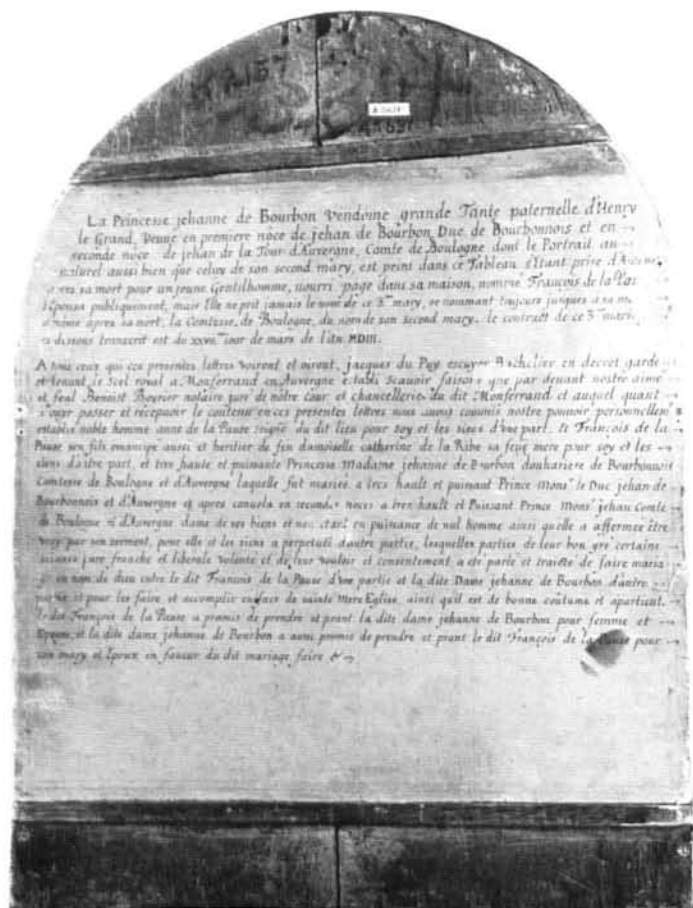 La Princesse jehanne de Bourbon Vendôme grande Tante paternelle d'Henry
le Grand, Veuve en premiere nôce de jehan de Bourbon Duc de Bourbonnois et en
seconde nôce de jehan de la Tour d'Auvergne, Comte de Boulogne dont le Portrait au
naturel aussi bien que celuy de son second mary, est peint dans ce Tableau s'étant prise d'
apres sa mort pour un jeune Gentilhomme, nourri page dans sa maison, nommé François de la
l'Epousa publiquement, mais Elle ne prit jamais le nom de ce 3me mary, se nommant toujours jusques a sa
et même apres sa mort, la Comtesse de Boulogne, du nom de son second mary. le contract de ce 3me
cy dessous transcrit est du xxviime jour de mars de l'an MDIII.
A tous ceux qui ces presentes lettres voiront et oiront, jacques du Puy escuyer Bachelier en decret garde
et tenant le scel royal a Monferrand en Auvergne establi scauoir faisons que par deuant nostre aimé
et feal Benoist Boyrier notaire juré de nôtre cour et chancellerie du dit Monferrand et auquel quant
a ouyr passer et recepuoir le contenu en ces presentes lettres nous auons commis nostre pouuoir personnellement
establis noble homme anne de la Pause seigr du dit lieu pour soy et les siens d'une part, et François de la
Pause son fils emancipé aussi et heritier de feu damoiselle catherine de la Ribe sa feüe mere pour soy et les
siens d'autre part, et tres haute et puissante Princesse Madame jehanne de Bourbon douhairiere de Bourbonnois
Comtesse de Boulogne et d'Auvergne laquelle fut mariée a tres hault et puissant Prince Monsr le Duc jehan de
Bourbonnois et d'Auvergne et apres conuola en secondes noces a tres hault et Puissant Prince Monsr jehan Comte
de Boulogne et d'Auvergne dame de ses biens et non étant en puissance de nul homme ainsi quelle a affermée être
vray par son serment, pour elle et les siens a perpetuité d'autre partie, lesquelles parties de leur bon gré certaine
science pure franche et liberale volonté et de leur vouloir et consentement a eté parlé et traiété de faire maria
ge en nom de dieu entre le dit François de la Pause d'une partie et la dite Dame jehanne de Bourbon d'autre
partie et pour les faire et accomplir en face de sainte Mere Eglise, ainsi quil est de bonne coûtume et apartient.
le dit François de la Pause a promis de prendre et prant la dite dame jehanne de Bourbon pour femme et
Epouse, et la dite dame jehanne de Bourbon a aussi promis de prendre et prant le dit François de la Pause pour
son mary et Epoux en faueur du dit mariage faire &